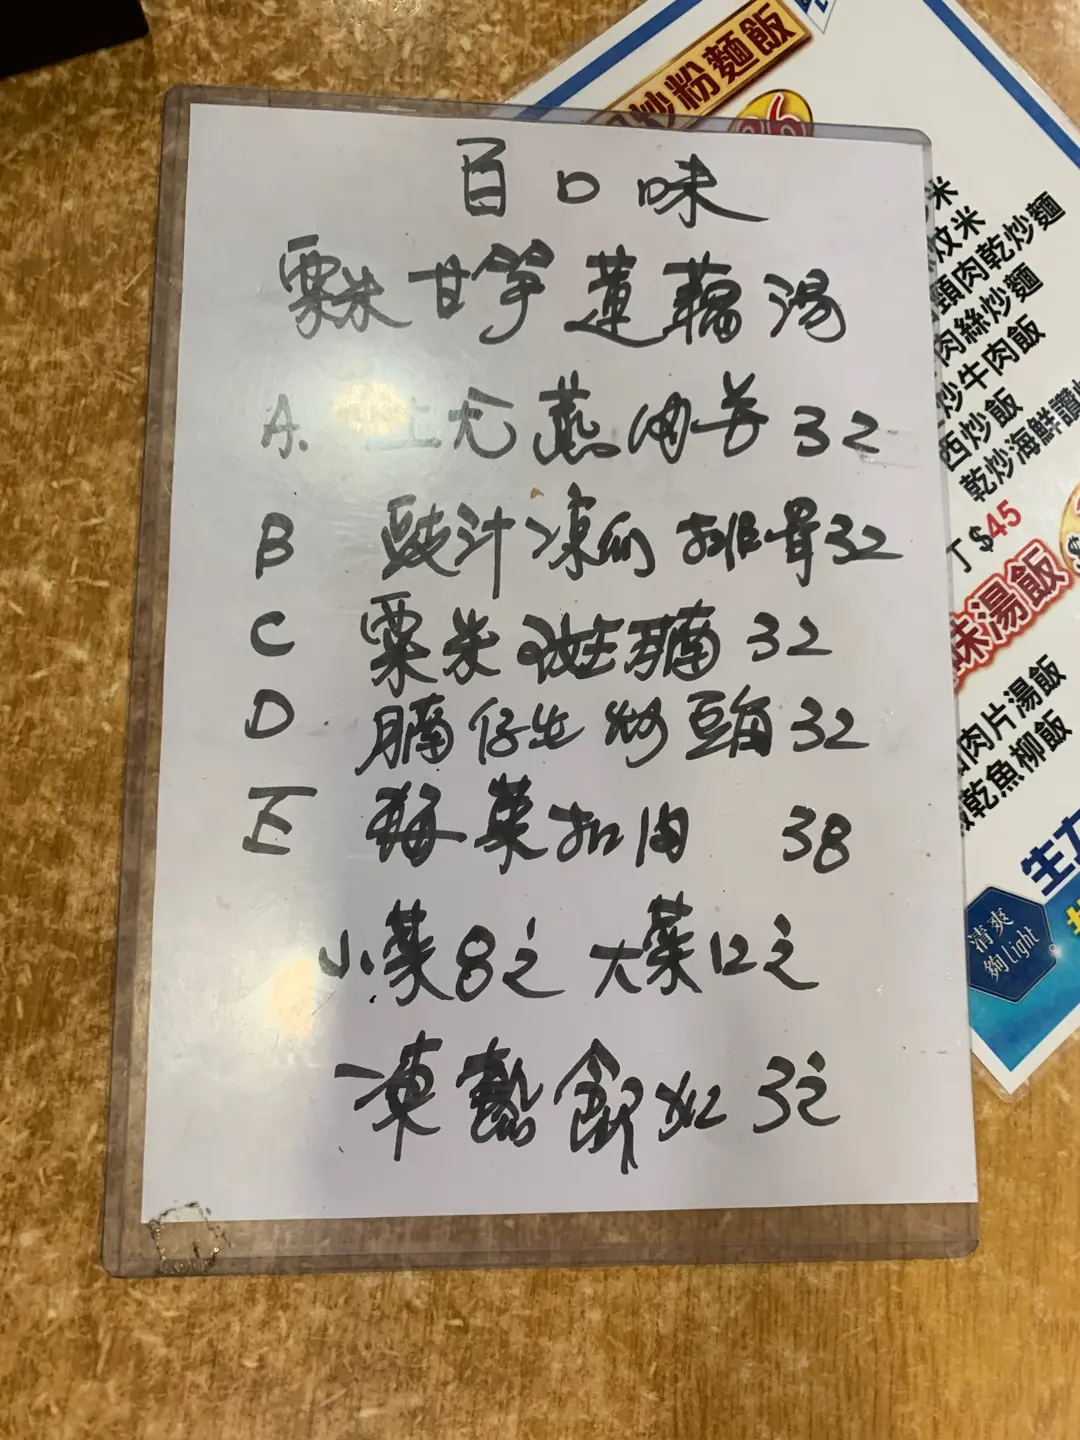 百口味
粟米甘笋蓮藕湯
A. 32
B 豉汁凉瓜排骨32
C 粟米斑腩32
D 腩仔 炒豆角32
E 梅菜扣肉 38
小菜8元 大菜12元
凍熱飲加3元
炒粉麵飯
26
米
炆米
頭肉乾炒麵
肉絲炒麵
炒牛肉飯
西炒飯
乾炒海鮮
丁$45
味湯飯
肉片湯飯
乾魚柳飯
清爽
夠Light